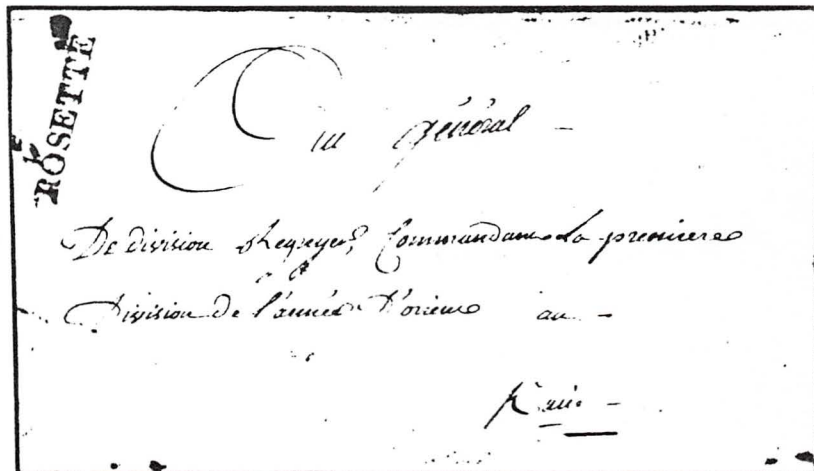 ROSETTE
Au général -
De division Regnyer, Commandant La premiere
Division de l'armée D'orient au -
Kaire -